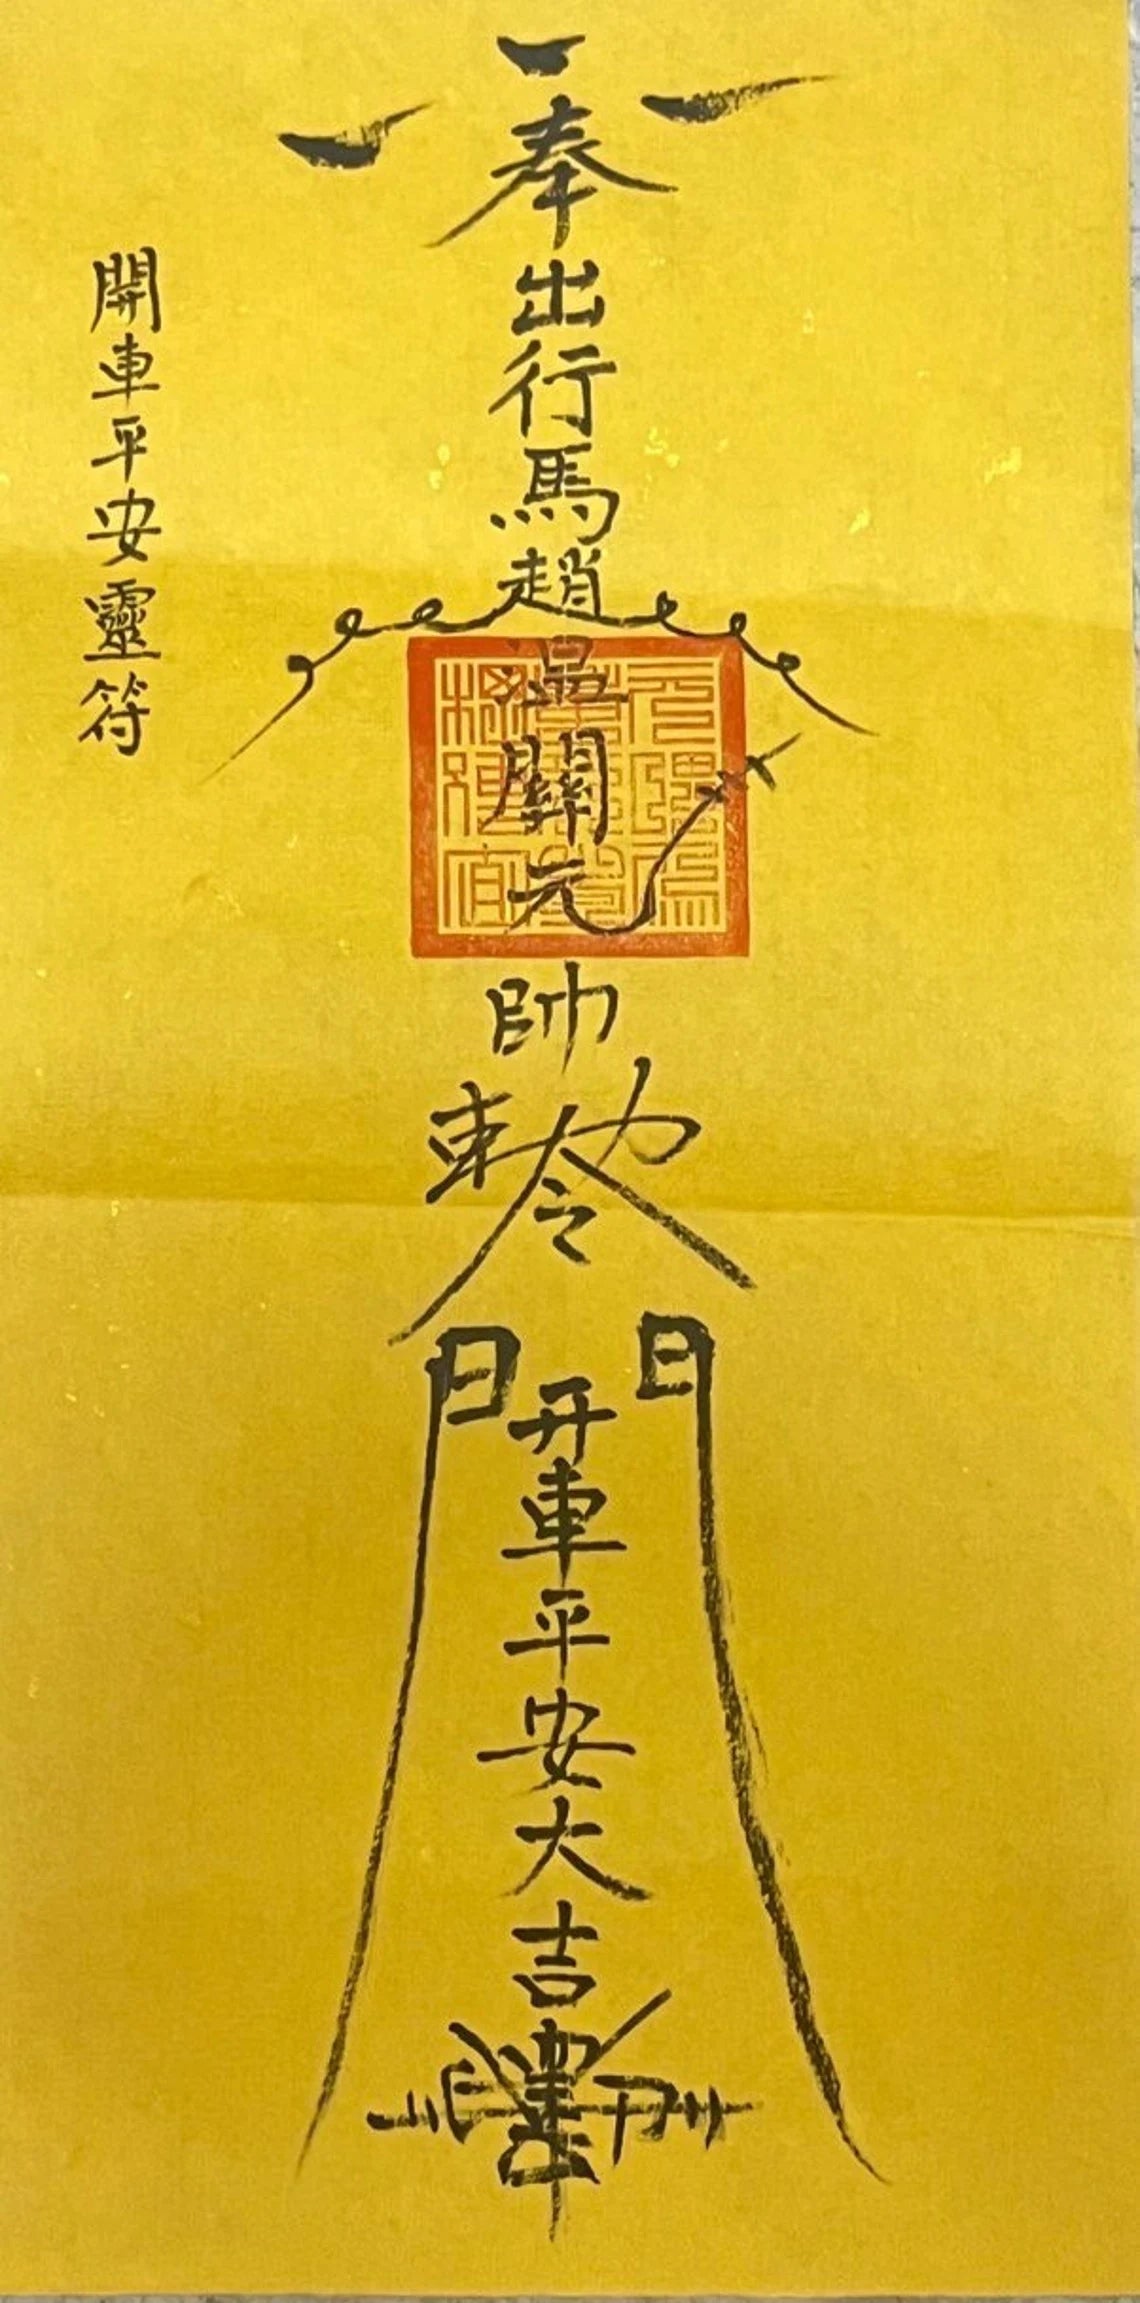 奉出行馬趙溫關元帥敕令
開車平安大吉
開車平安靈符